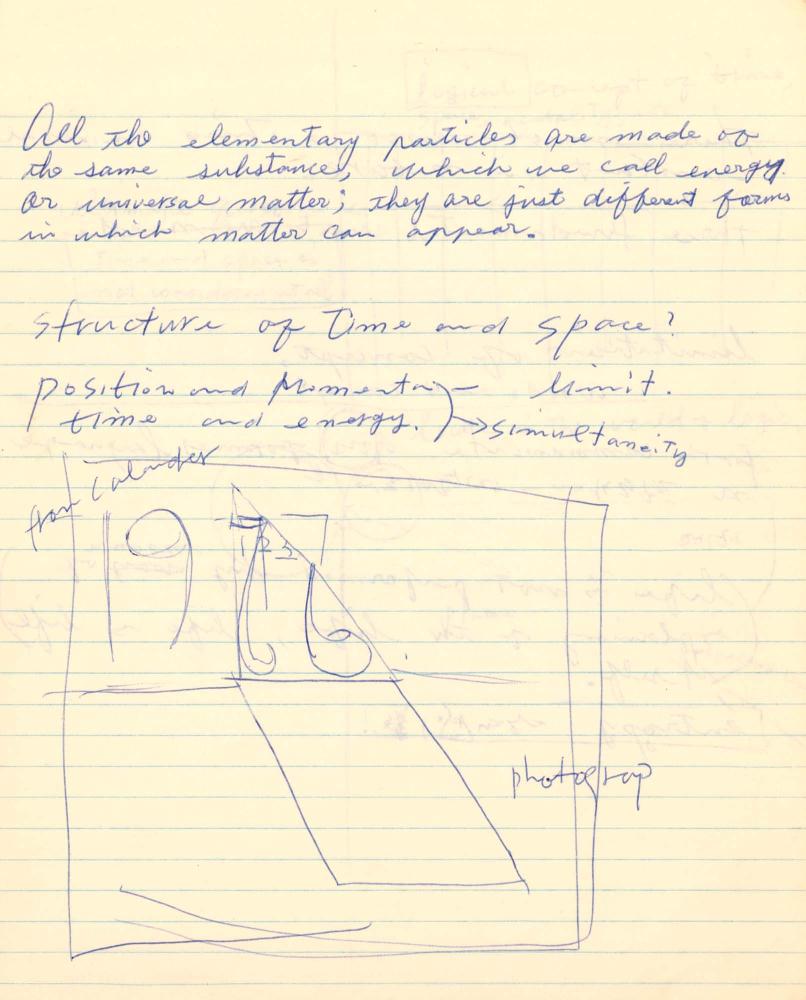 All the elementary particles are made of
the same substance, which we call energy
or universal matter; they are just different forms
in which matter can appear.
Structure of Time and space?
position and Momenta — limit.
time and energy. → simultaneity
from Calander
19
1 2 3
photograp